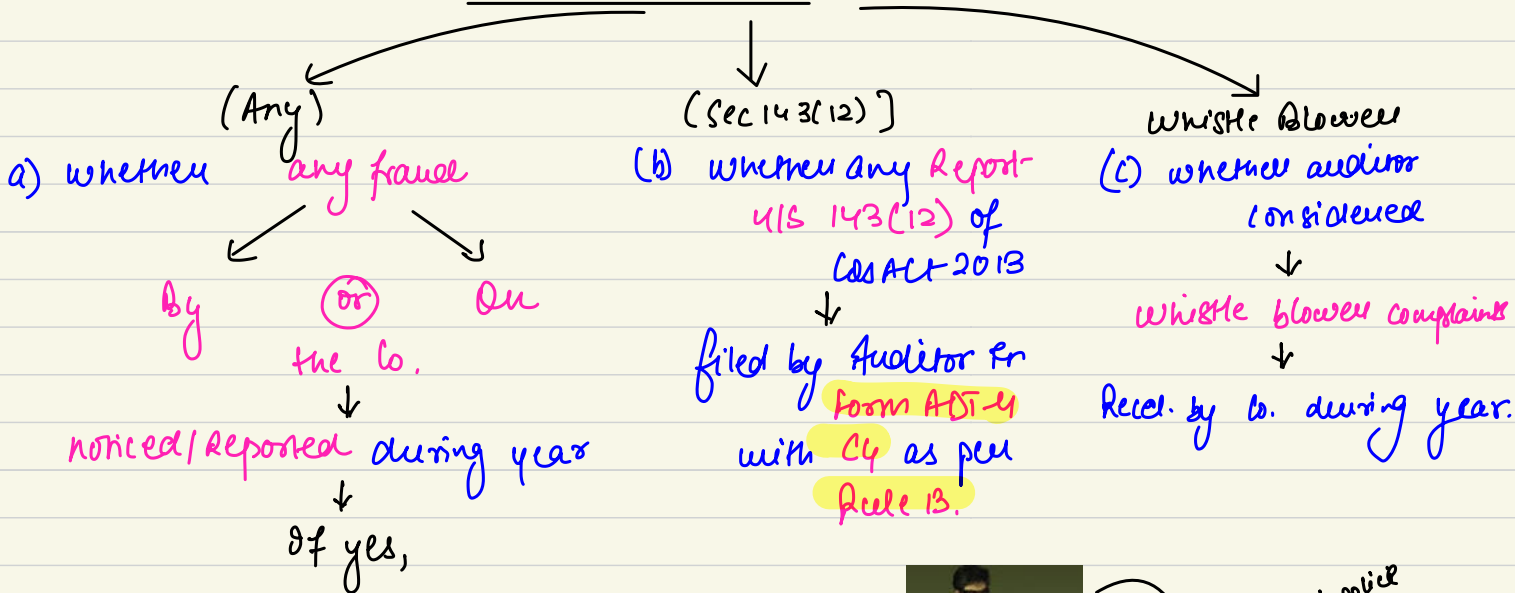 (Any)
a) whether any fraud
By or On
the Co.
noticed/Reported during year
If yes,
(Sec 143(12)]
(b) whether any Report
u/s 143(12) of
Cos ACt 2013
filed by Auditor in
Form ADT-4
with CG as per
Rule 13.
Whistle Blower
(c) whether auditor
considered
whistle blower complaints
Recd. by Co. during year.